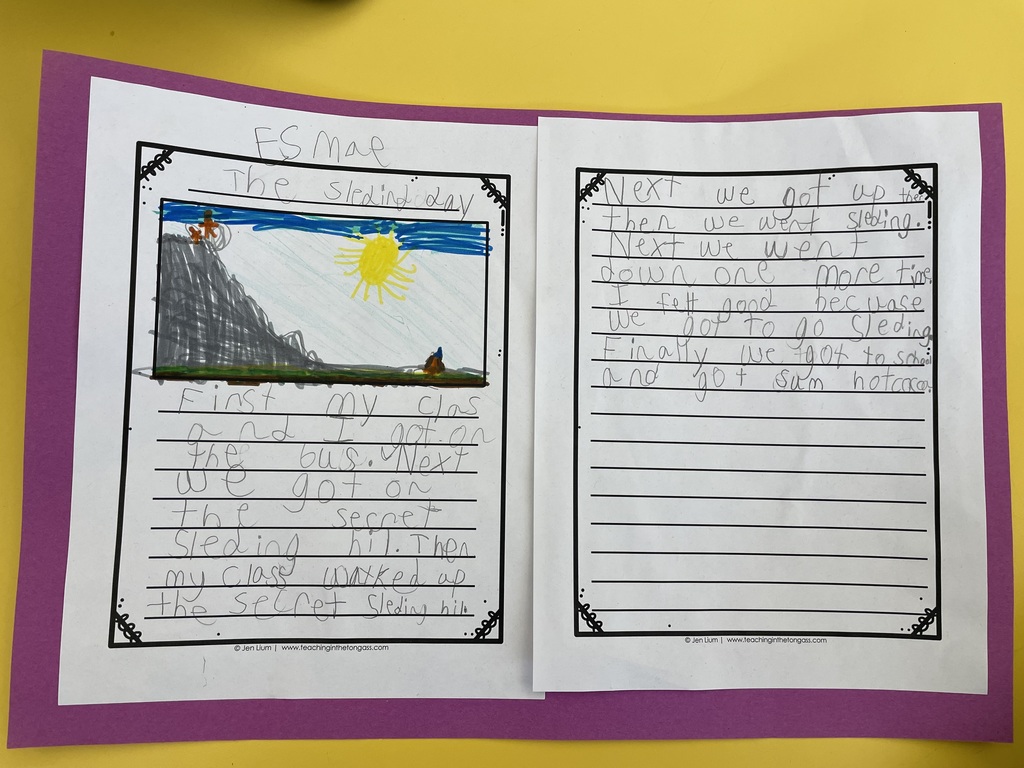 ESMae
The sleding day
First my clas
and I got on
the bus. Next
we got on
the secret
sleding hil. Then
my class walked up
the secret sleding hil.
© Jen Lium | www.teachinginthetongass.com
Next we got up then
then we went sleding.
Next we went
down one more time.
I felt good becuase
we got to go sleding
Finally we got to school
and got sum hotcocoa.
© Jen Lium | www.teachinginthetongass.com